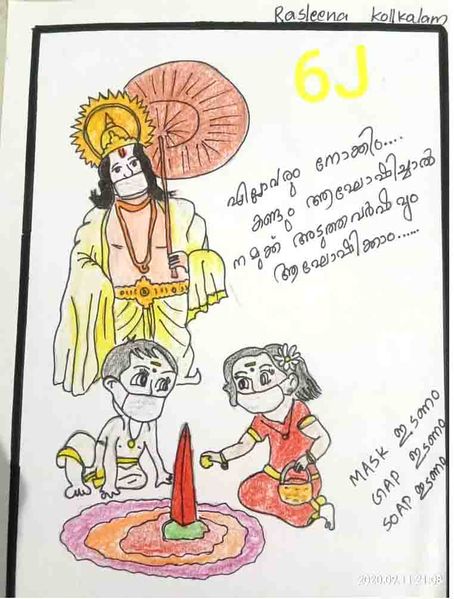 Rasleena kollkalam
6J
എല്ലാവരും നോക്കിം....
കണ്ടും ആഘോഷിച്ചാൽ
നമുക്ക് അടുത്തവർഷവും
ആഘോഷിക്കാം......
MASK ഇടണം
GAP ഇടണം
SOAP ഇടണം